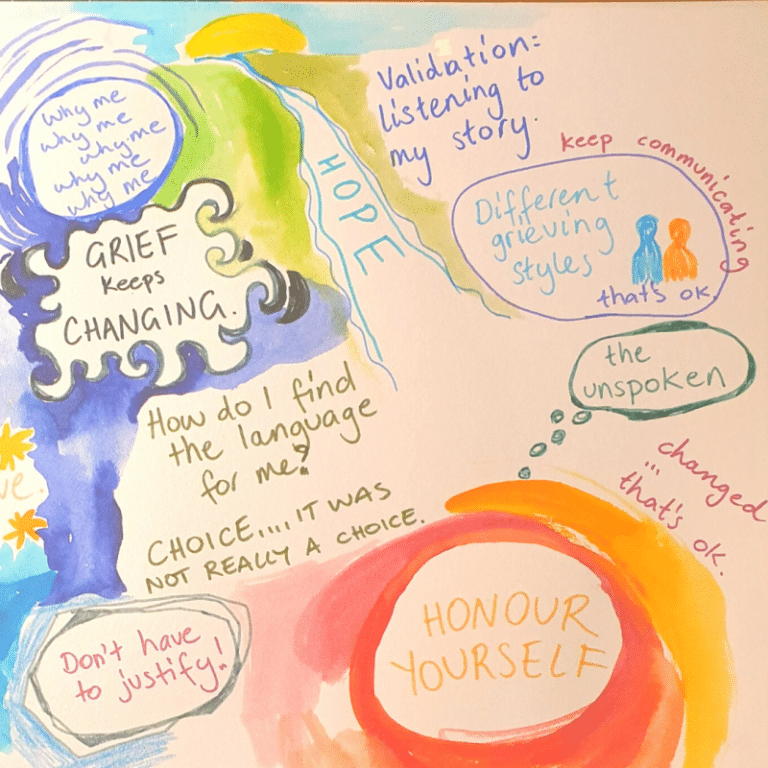 why me
why me
why me
why me
why me
GRIEF
keeps
CHANGING.
HOPE
Validation:
listening to
my story.
keep communicating
Different
grieving
styles
that's ok.
the
unspoken
How do I find
the language
for me?
CHOICE.... IT WAS
NOT REALLY A CHOICE.
changed
...
that's
ok.
Don't have
to justify!
HONOUR
YOURSELF